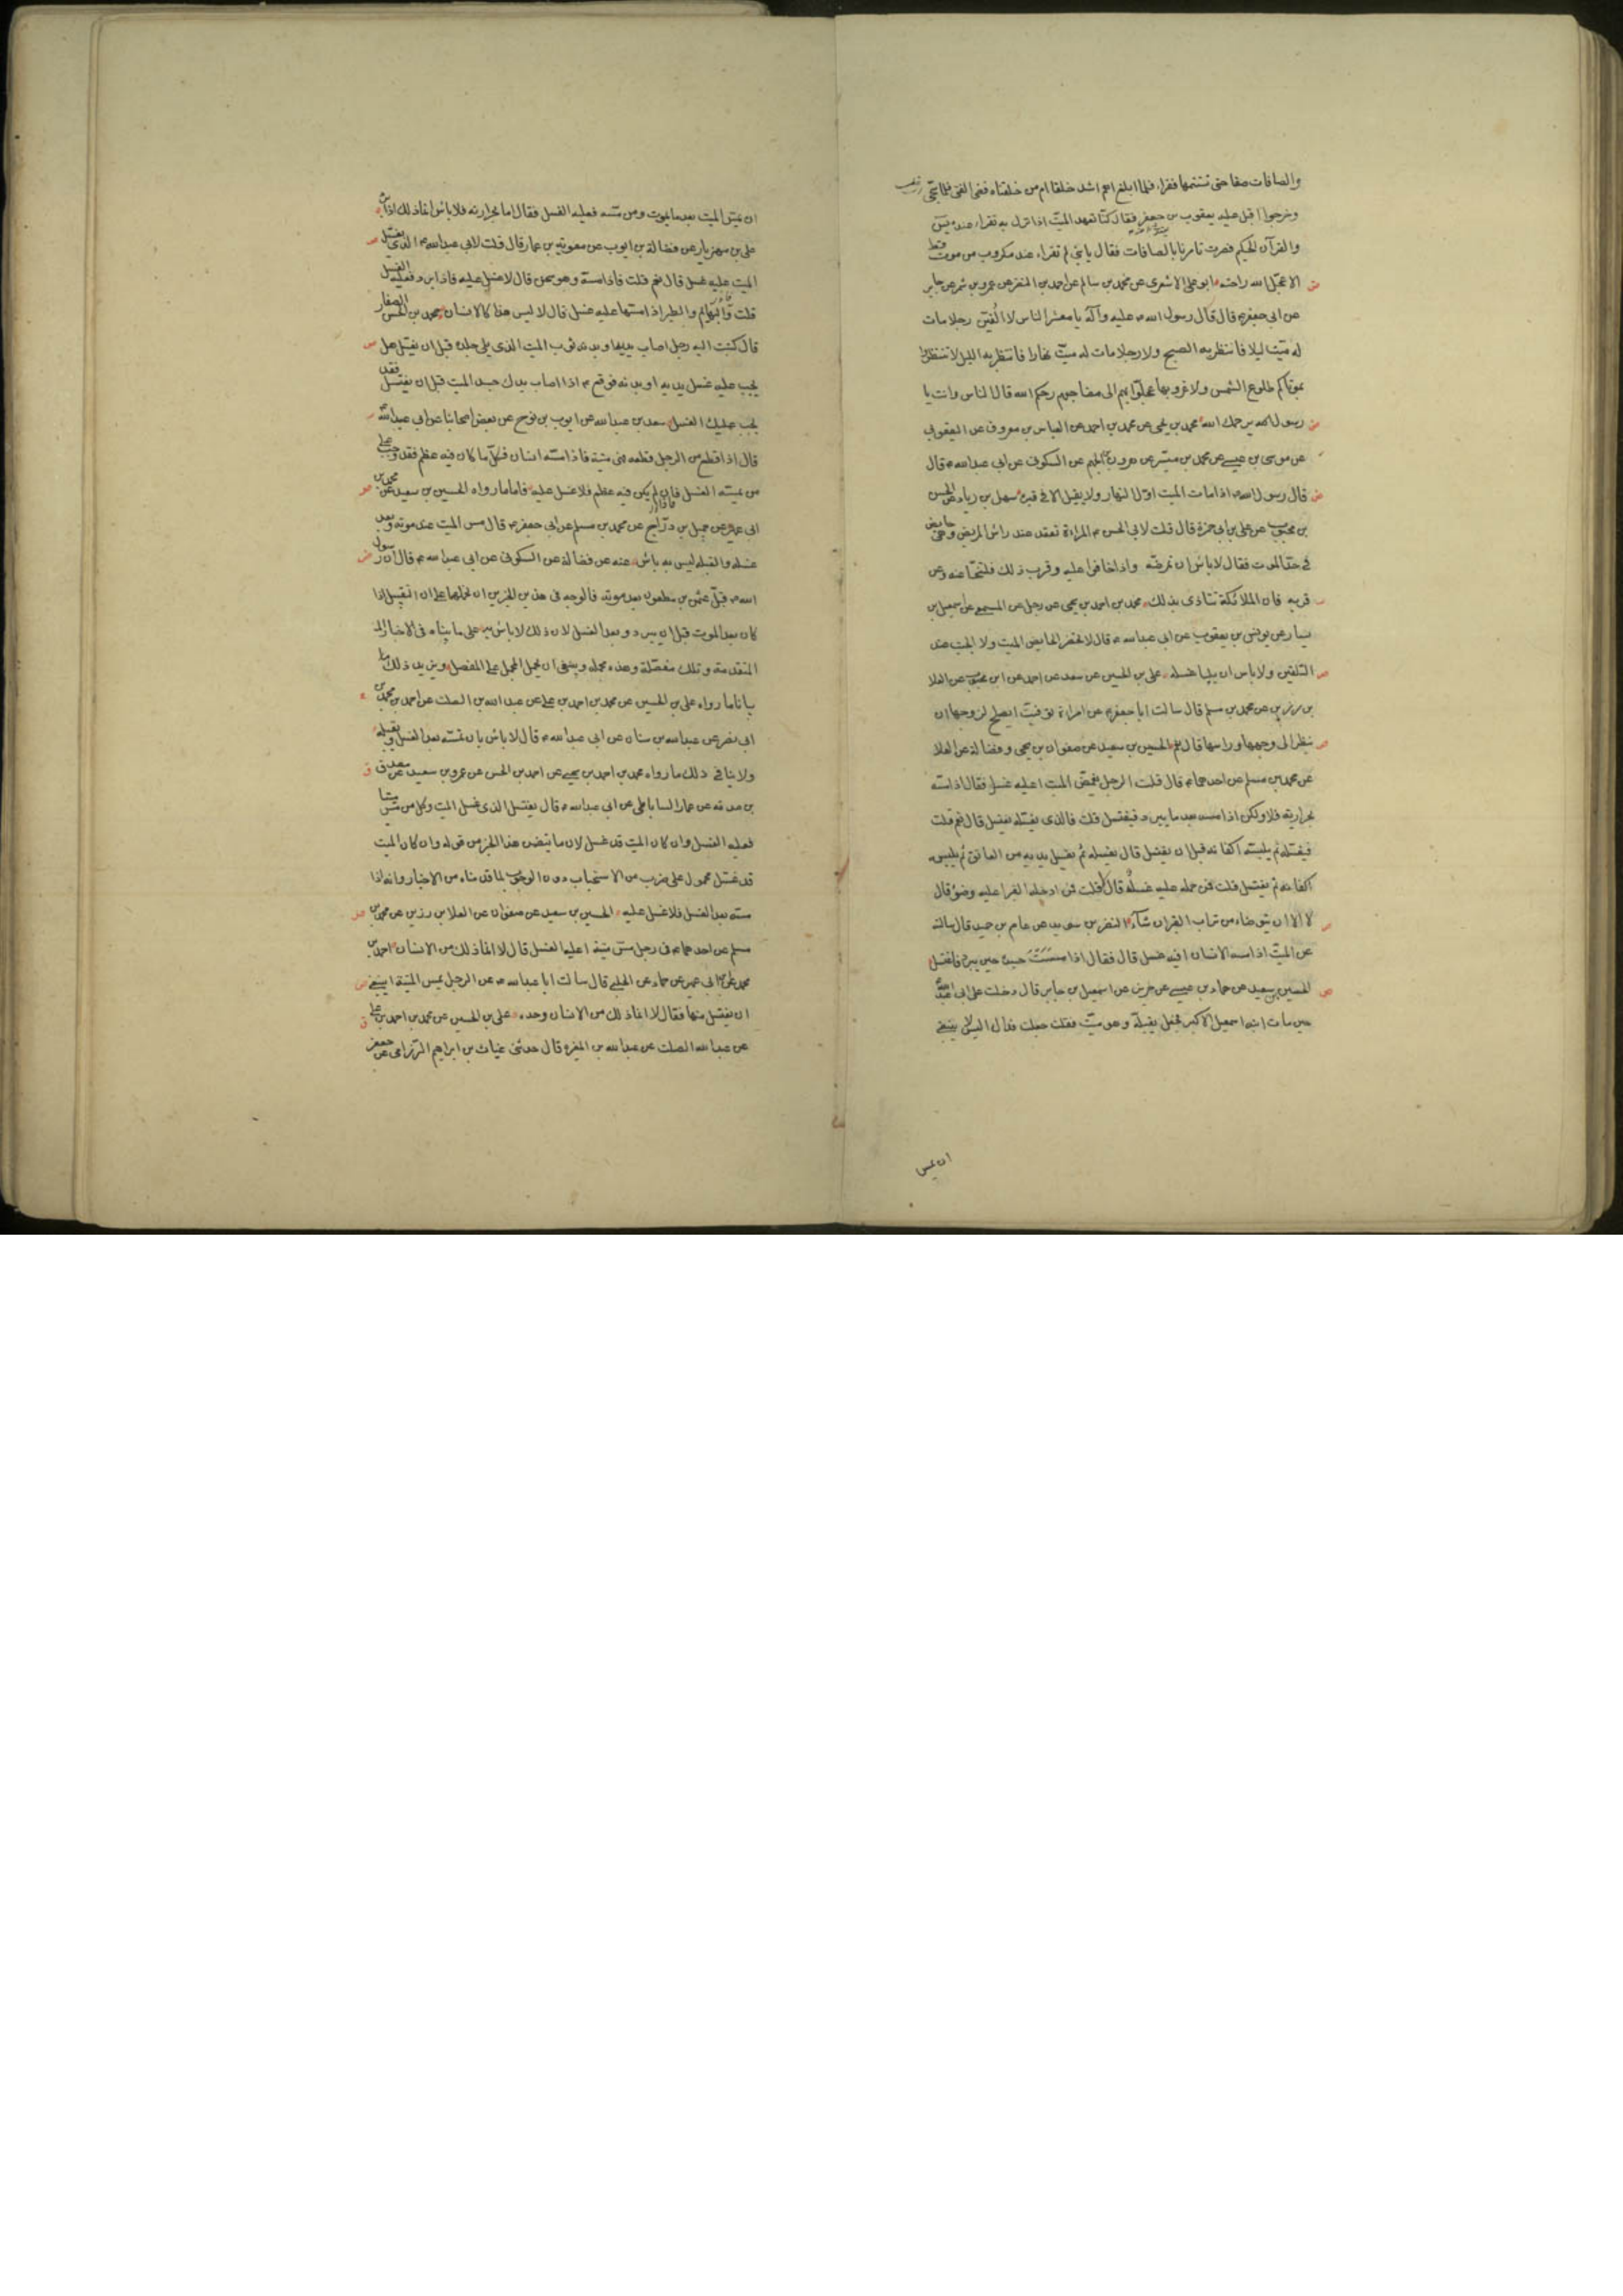 والصافات صفا حتى تستتمها فقراء فلما بلغ اهم اشد خلقا ام من خلقناه قضى الفتى فلما سجّى
وخرجوا اقبل عليه يعقوب بن جعفر فقال كنّا نعهد الميّت اذا نزل به تقراء عنده يس
والقرآن الحكيم فصرت تامرنا بالصافات فقال يا بنى لم تقراء عند مكروب من موت قط
الا عجّل الله راحته ابو على الاشعرى عن محمد بن سالم عن احمد بن النضر عن عمرو بن شمر عن جابر
عن ابى جعفر ع قال قال رسول الله ص عليه وآله يا معشر الناس لا الفينّ رجلا مات
له ميّت ليلا فانتظر به الصبح ولا رجلا مات له ميّت نهارا فانتظر به الليل لا تنتظروا
بموتاكم طلوع الشمس ولا غروبها عجلوا بهم الى مضاجعهم رحمكم الله قال الناس وانت يا
رسول الله يرحمك الله محمد بن يحيى عن محمد بن احمد عن العباس بن معروف عن اليعقوبى
عن موسى بن عيسى عن محمد بن ميسر عن هرون بن الجهم عن السكونى عن ابى عبد الله ع قال
قال رسول الله ص اذا مات الميت اوّل النهار ولا يقيل الا فى قبره سهل بن زياد عن الحسن
بن محبوب عن على بن ابى حمزة قال قلت لابى الحسن ع المراءة تقعد عند راس المريض وهى حايض
فى حدّ الموت فقال لا باس ان تمرضه واذا خافوا عليه وقرب ذلك فلتنحّا عنه وعن
قربه فان الملائكة تتاذى بذلك محمد بن احمد بن يحيى عن رجل عن المسمعى عن اسمعيل بن
يسار عن يونس بن يعقوب عن ابى عبد الله ع قال لا تحضر الحايض الميت ولا الجنب عند
التلقين ولا باس ان يليا غسله على بن الحسين عن سعد عن احمد عن ابن محبوب عن العلا
بن رزين عن محمد بن مسلم قال سالت ابا جعفر ع عن امراءة توفيت ايصلح لزوجها ان
ينظر الى وجهها وراسها قال نعم الحسين بن سعيد عن صفوان بن يحيى وفضالة عن العلا
عن محمد بن مسلم عن احدهما ع قال قلت الرجل يغمّض الميت اعليه غسل فقال اذا مسّه
بحرارته فلا ولكن اذا مسه بعد ما يبرد فليغتسل قلت فالذى يغسّله يغتسل قال نعم قلت
فيغسّله ثم يلبسه اكفانه قبل ان يغتسل قال يغسله ثم يغسل يديه من العاتق ثم يلبسه
اكفانه ثم يغتسل قلت فمن حمله عليه غسل قال لا قلت فمن ادخله القبر اعليه وضوء قال
لا الا ان يتوضاء من تراب القبر ان شآء النضر بن سويد عن عاصم بن حميد قال سالته
عن الميّت اذا مسه الانسان افيه غسل قال فقال اذا مسست جسده حين يبرد فاغتسل
الحسين بن سعيد عن حماد بن عيسى عن حريز عن اسمعيل بن جابر قال دخلت على ابى عبد الله
حين مات ابنه اسمعيل الاكبر فجعل يقبله وهو ميّت فقلت جعلت فداك اليس لا ينبغى
ان يمس
ان يمسّ الميت بعد ما يموت ومن مسّه فعليه الغسل فقال اما بحرارته فلا باس انما ذلك اذا برد
على بن مهزيار عن فضالة بن ايوب عن معوية بن عمار قال قلت لابى عبد الله ع الذى يغسّل
الميت عليه غسل قال نعم قلت فاذا مسه وهو سخن قال لا غسل عليه فاذا برد فعليه الغسل
قلت والبهايم والطير اذا مسها عليه غسل قال لا ليس هذا كالانسان محمد بن الحسن الصفار
قال كتبت اليه رجل اصاب يديه او بدنه ثوب الميت الذى يلى جلده قبل ان يغسل هل
يجب عليه غسل يديه او بدنه فوقع ع اذا اصاب يدك جسد الميت قبل ان يغسّل فقد
يجب عليك الغسل سعد بن عبد الله عن ايوب بن نوح عن بعض اصحابنا عن ابى عبد الله
قال اذا قطع من الرجل قطعه فهى ميتة فاذا مسه انسان فكلّ ما كان فيه عظم فقد وجب على
من يمسّه الغسل فان لم يكن فيه عظم فلا غسل عليه فاما ما رواه الحسين بن سعيد عن محمد بن
ابى عمير عن جميل بن درّاج عن محمد بن مسلم عن ابى جعفر ع قال مس الميت عند موته وبعد
غسله والقبله ليس به باس عنه عن فضالة عن السكونى عن ابى عبد الله ع قال ان رسول
الله ص قبّل عثمن بن مظعون بعد موته فالوجه فى هذين الخبرين ان نحملهما على ان التقبيل اذا
كان بعد الموت قبل ان يبرد وبعد الغسل لان ذلك لا باس به على ما بيناه فى الاخبار
المتقدمة وتلك مفصّلة وهذه مجمله وينبغى ان يحمل المجمل على المفصل ويزيد ذلك
بيانا ما رواه على بن الحسين عن محمد بن احمد بن على عن عبد الله بن الصلت عن احمد بن محمد بن
ابى نصر عن عبد الله بن سنان عن ابى عبد الله ع قال لا باس بان تمسّه بعد الغسل وتقبله
ولا ينافى ذلك ما رواه محمد بن احمد بن يحيى عن احمد بن الحسن عن عمرو بن سعيد عن مصدق
بن صدقه عن عمار الساباطى عن ابى عبد الله ع قال يغتسل الذى غسل الميت وكل من مسّ ميتا
فعليه الغسل وان كان الميت قد غسل لان ما يتضمن هذا الخبر من قوله وان كان الميت
قد غسّل محمول على ضرب من الاستحباب دون الوجوب لما قدمناه من الاخبار وانه اذا
مسّه بعد الغسل فلا غسل عليه الحسين بن سعيد عن صفوان عن العلا بن رزين عن محمد بن
مسلم عن احدهما ع فى رجل مسّ ميتة اعليه الغسل قال لا انما ذلك من الانسان احمد بن
محمد عن ابن ابى عمير عن حماد عن الحلبى قال سالت ابا عبد الله ع عن الرجل يمس الميتة اينبغى
ان يغتسل منها فقال لا انما ذلك من الانسان وحده على بن الحسين عن محمد بن احمد بن على
عن عبد الله الصلت عن عبد الله بن المغيره قال حدثنى غياث بن ابراهيم الرزامى عن جعفر